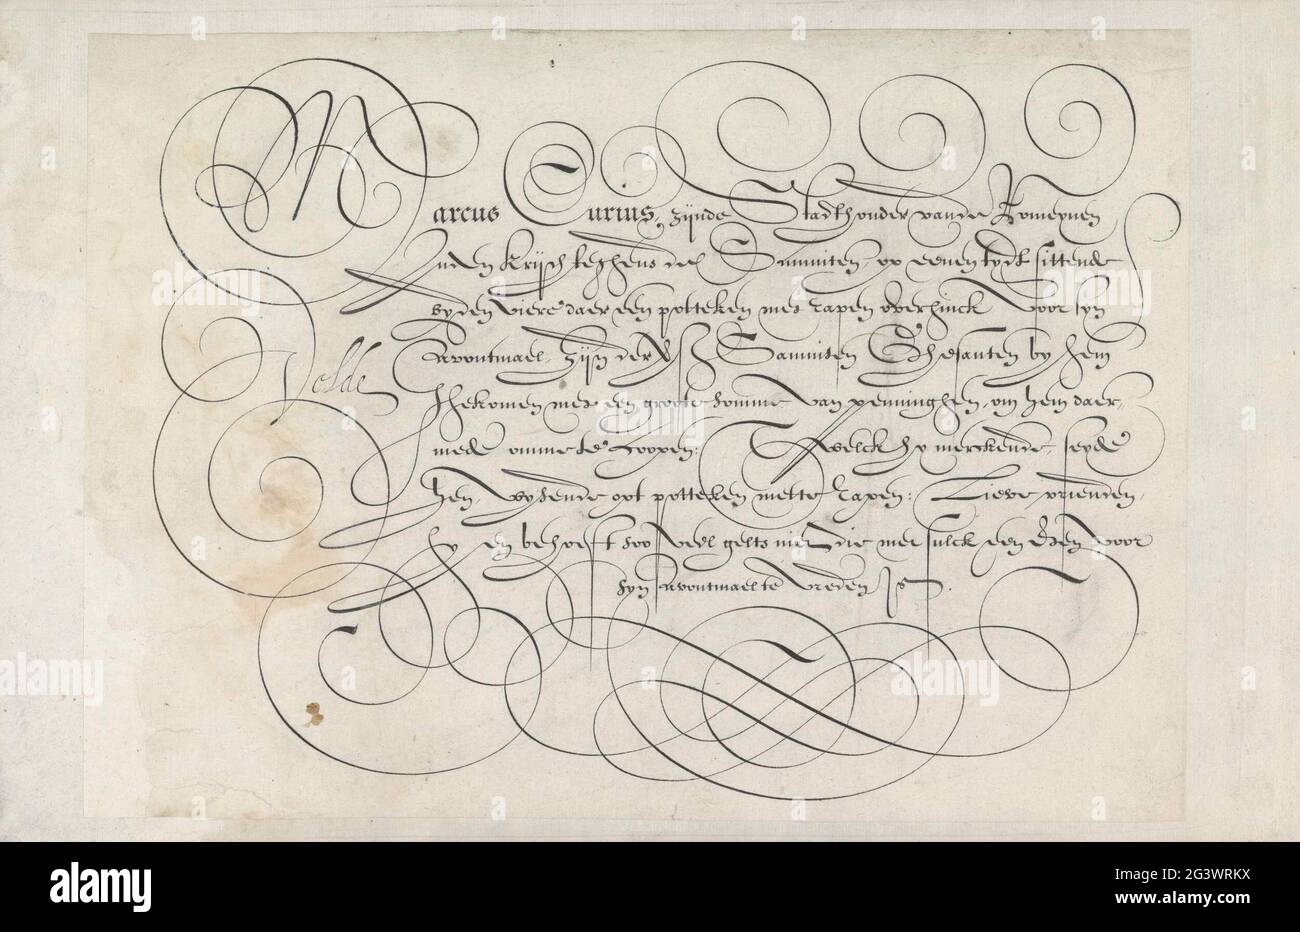 Marcus Curius, zijnde Stadthouder vande Romeynen
Inden krijch teghens dei Samniten, op eenen tydt sittende
by den viere daer een potteken met rapen over hinck Voor syn
Avontmael, zijn der Samniten Ghesanten by hem
Ghekomen met een groote somme van penninghen, om hem daer,
mede omme te coopen: Twelck hy merckende, seyde
hen, wysende opt potteken mette rapen: Lieve vrienden,
hy en behoeft soo veel gelts niet die met sulck een eten voor
syn avontmael te vreden is.
Velde
alamy
Image ID: 2G3WRKX
www.alamy.com